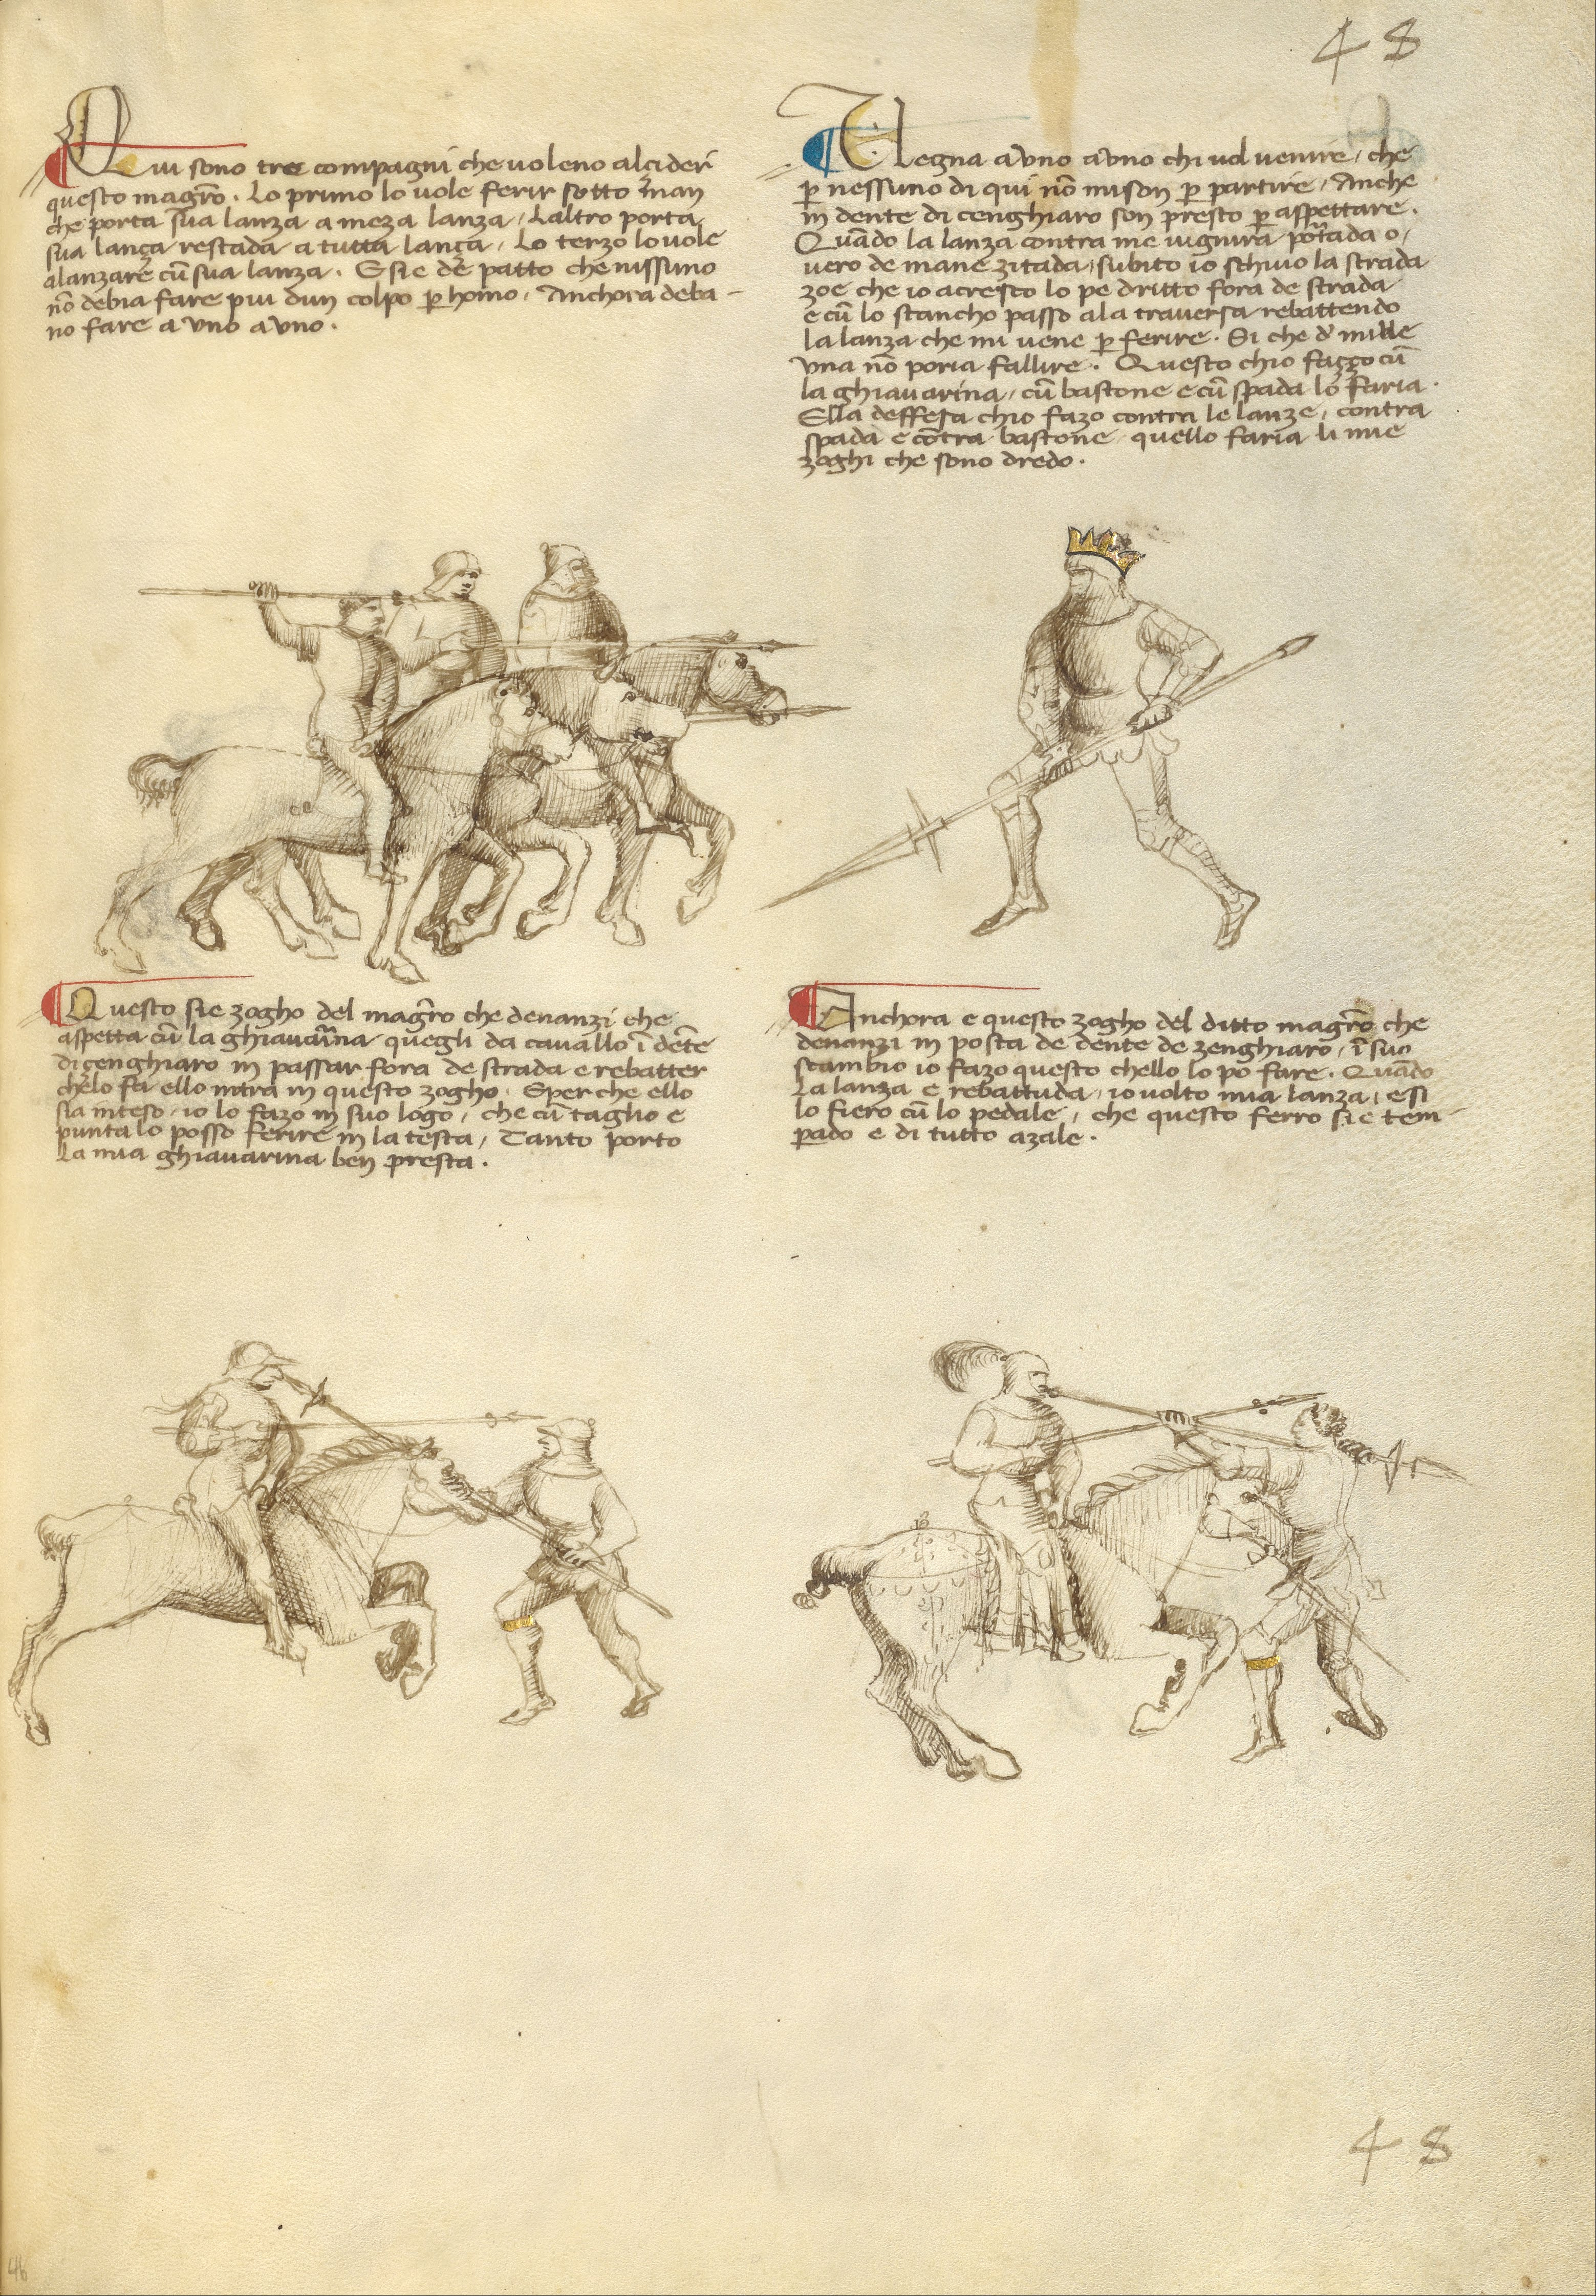 48
Qui sono tre compagni che voleno alçider
questo magr̄o. Lo primo lo vole ferir sotto man
che porta sua lanza a meza lanza, Laltro porta
sua lança restada a tutta lança, Lo terzo lo vole
alanzare cū sua lanza. E si e de patto che nissuno
nō debia fare piu dun colpo per homo, Anchora deba-
no fare a uno a uno.
Uegna a uno a uno chi vol venire, che
per nessuno di qui nō mi son per partire, Anche
in dente di cenghiaro son presto per aspettare.
Quādo la lanza contra me vignira portada o,
vero de mane zitada, subito io schivo la strada
zoe che io acresco lo pe dritto fora de strada
e cū lo stancho passo ala traversa rebattendo
la lanza che mi vene per ferire. Si che de mille
una nō poria fallire. Questo chio fazzo cū
la ghiavarina, cū bastone e cū spada lo faria.
Ella deffesa chio fazo contra le lanze, contra
spada e cōtra bastone quello faria li mie
zoghi che sono dredo.
Questo sie zogho del magr̄o che denanzi che
aspetta cū la ghiavarina quegli da cavallo ī dēte
di cenghiaro in passar fora de strada e rebatter
chelo fa ello intra in questo zogho. E per che ello
sia inteso, io lo fazo in suo logo, che cū taglio e
punta lo posso ferire in la testa, Tanto porto
la mia ghiavarina ben presta.
Anchora e questo zogho del ditto magr̄o che
denanzi in posta de dente de zenghiaro, ī suo
scambio io fazo questo chello lo po fare. Quādo
La lanza e rebattuda, io volto mia lanza, e si
lo fiero cū lo pedale, che questo ferro sie tem-
perado e di tutto azale.
48
46